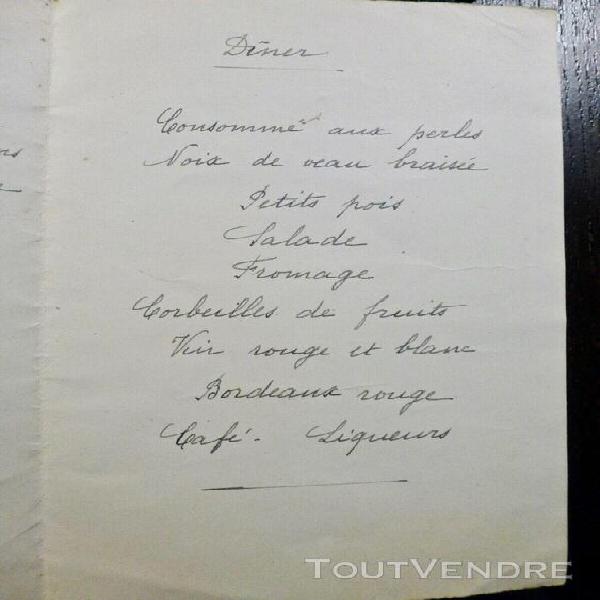 Dîner
Consommé aux perles
Noix de veau braisée
Petits pois
Salade
Fromage
Corbeilles de fruits
Vin rouge et blanc
Bordeaux rouge
Café - Liqueurs
TOUTVENDRE